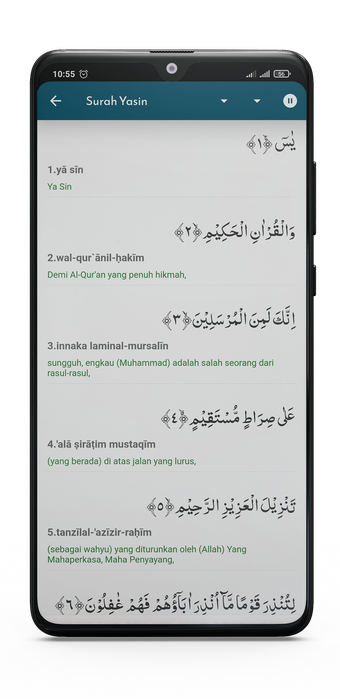 10:55
56
Surah Yasin
يٰسۤ ﴿١﴾
1.yā sīn
Ya Sin
وَالْقُرْاٰنِ الْحَكِيْمِ ﴿٢﴾
2.wal-qur`ānil-ḥakīm
Demi Al-Qur'an yang penuh hikmah,
اِنَّكَ لَمِنَ الْمُرْسَلِيْنَ ﴿٣﴾
3.innaka laminal-mursalīn
sungguh, engkau (Muhammad) adalah salah seorang dari
rasul-rasul,
عَلٰى صِرَاطٍ مُّسْتَقِيْمٍ ﴿٤﴾
4.'alā ṣirāṭim mustaqīm
(yang berada) di atas jalan yang lurus,
تَنْزِيْلَ الْعَزِيْزِ الرَّحِيْمِ ﴿٥﴾
5.tanzīlal-'azīzir-raḥīm
(sebagai wahyu) yang diturunkan oleh (Allah) Yang
Mahaperkasa, Maha Penyayang,
لِتُنْذِرَ قَوْمًا مَّآ اُنْذِرَ اٰبَاۤؤُهُمْ فَهُمْ غٰفِلُوْنَ ﴿٦﴾